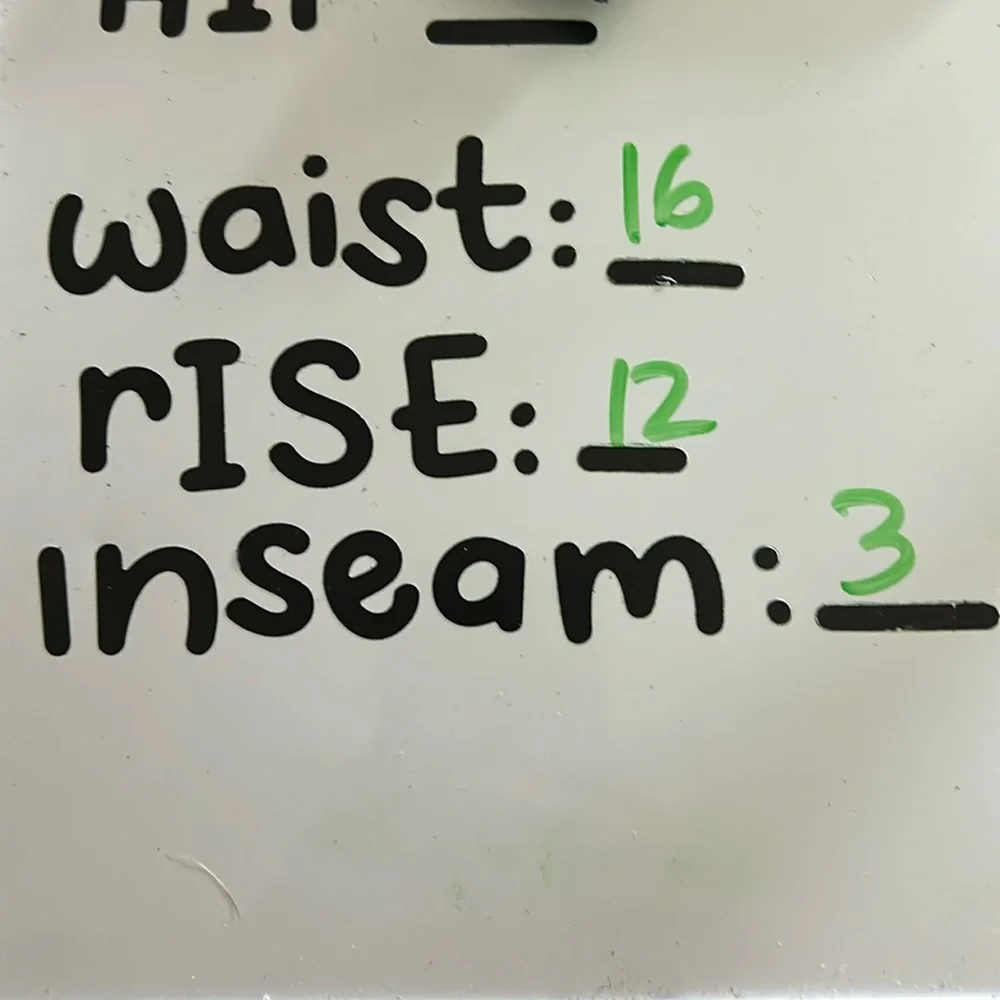 waist: 16
rISE: 12
Inseam: 3